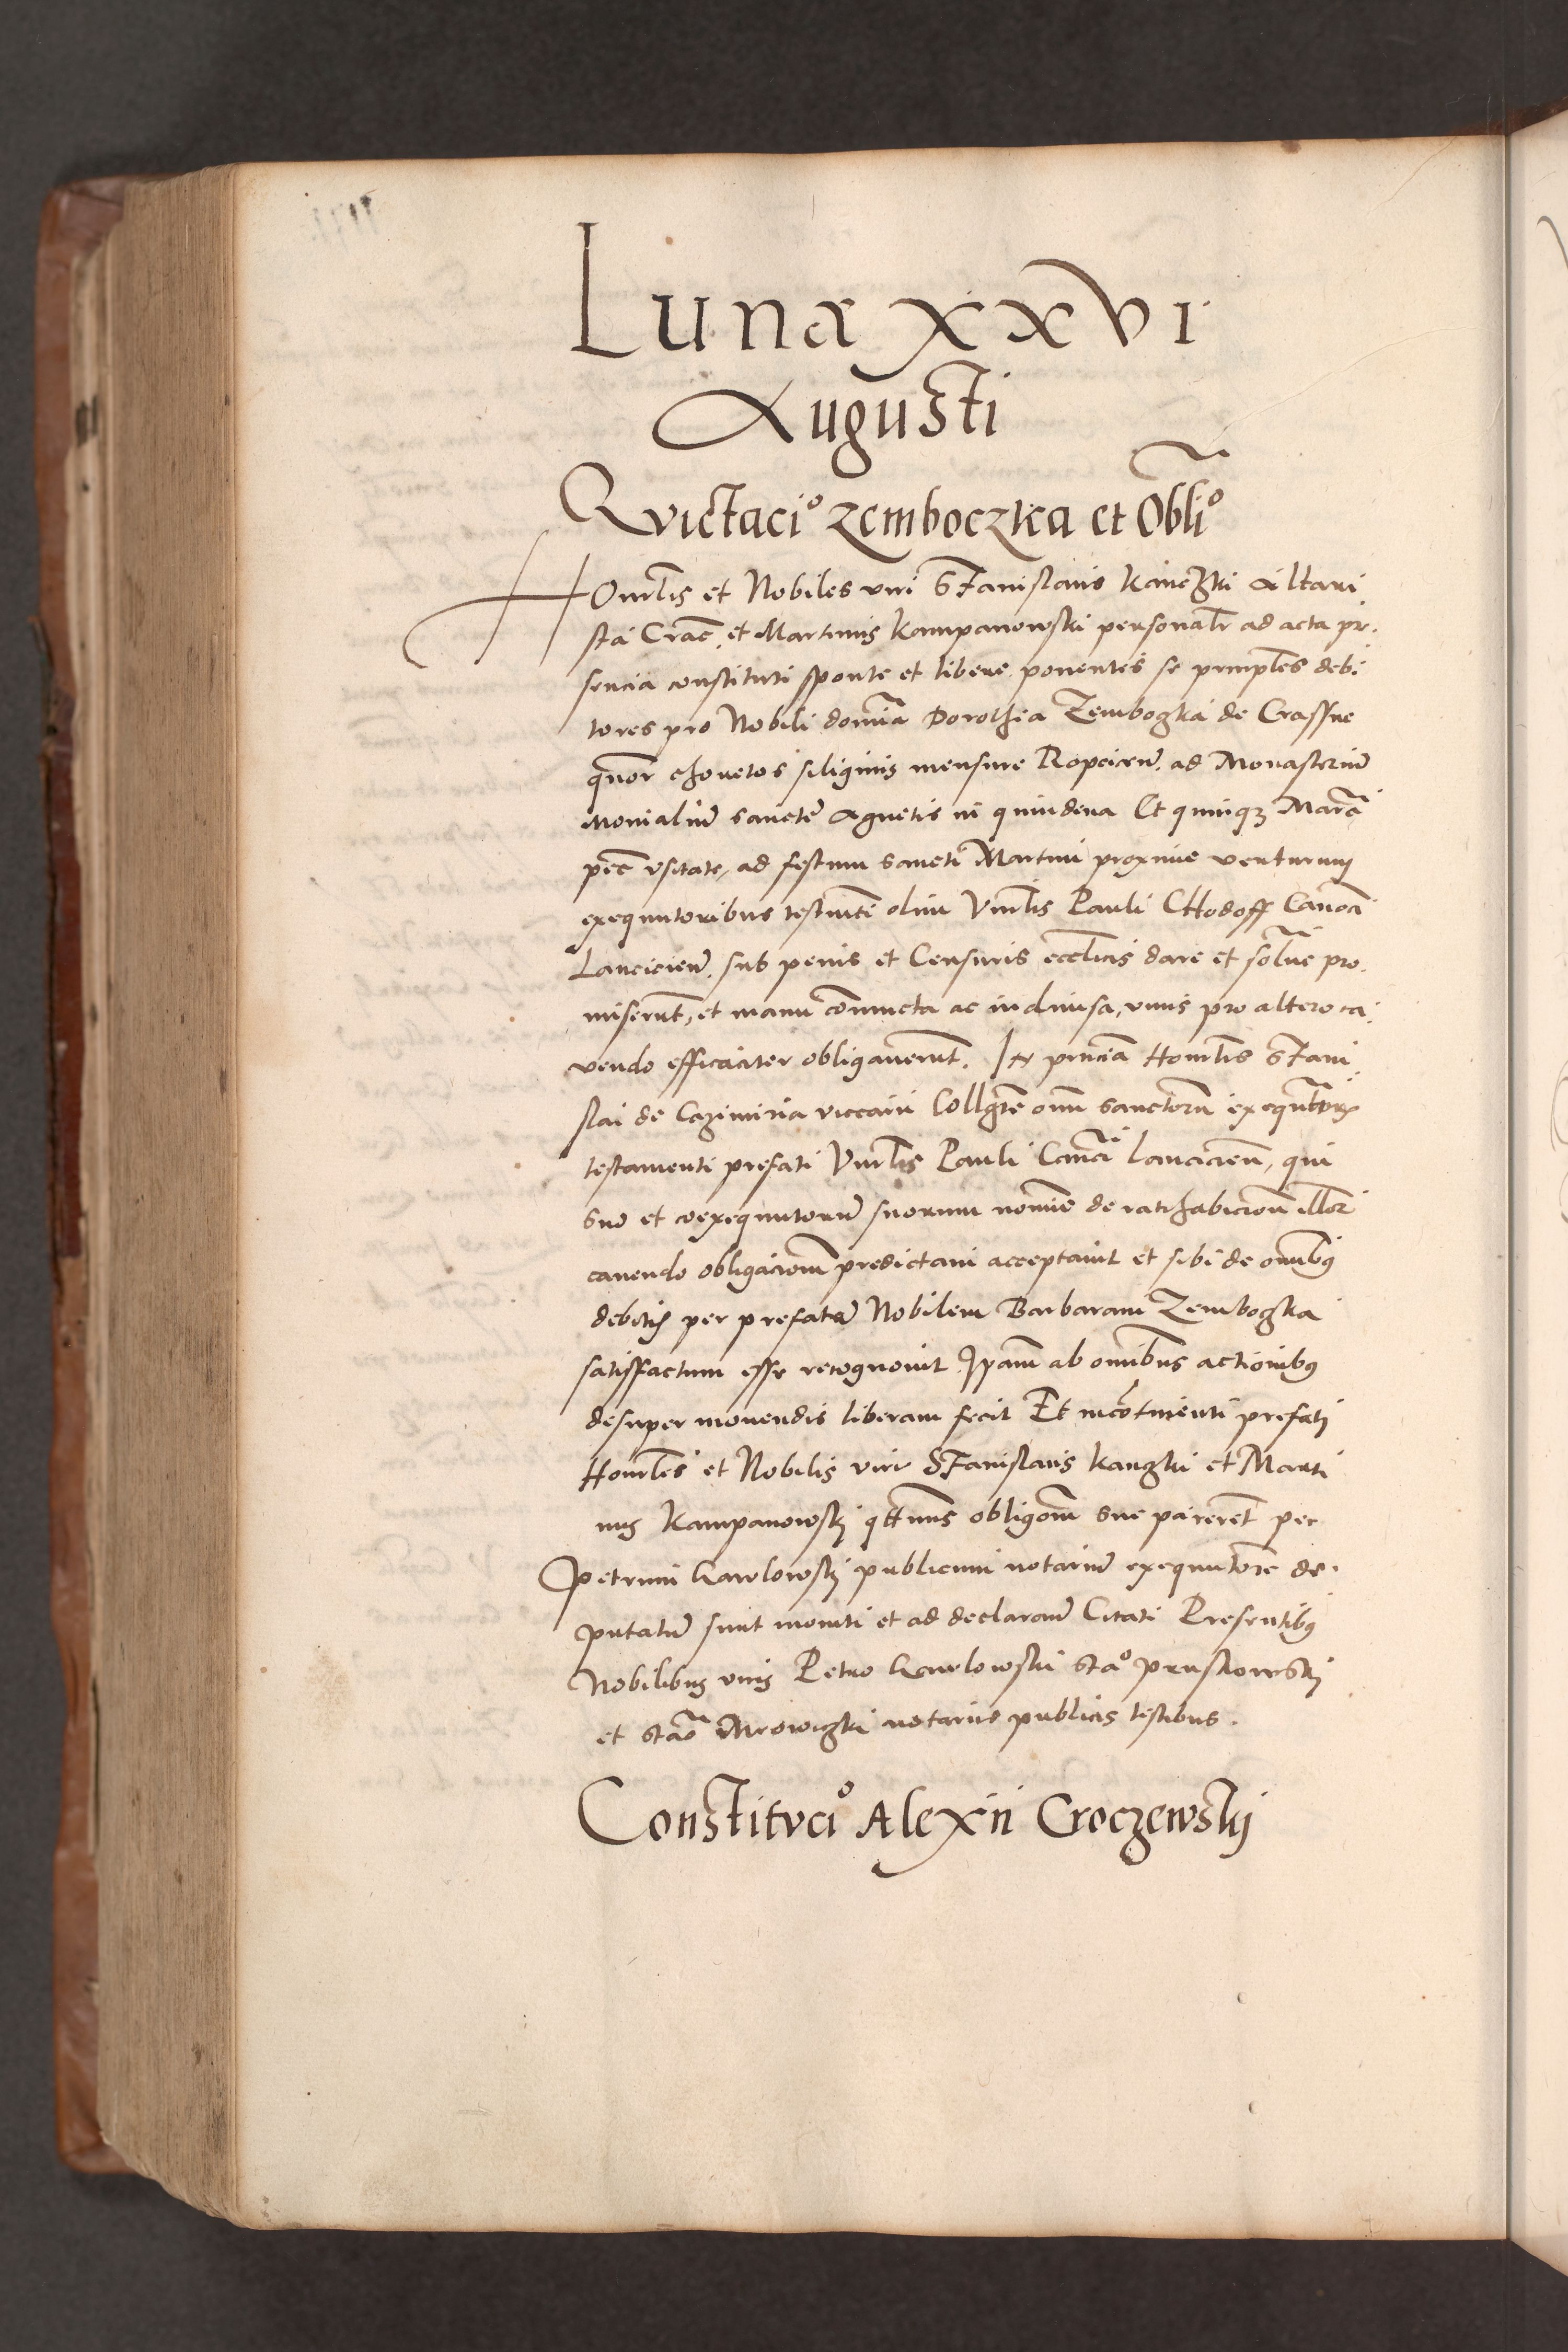 Lunæ xxvi
Augusti
Qvictacio zemboczka et Oblio
HOnrlis et Nobiles viri Stanislaus Kaneczki Altari
sta Crac. et Martinus Kampanowski personalr ad acta pre.
sencia constituti sponte et libere ponentes se prncples debi
tores pro Nobili domina Dorothea Zemboczka de Crassne
quor choretos siliginis mensure Ropcicen. ad Monasterium
Monialium sancte Agnetis in quindena Et quinqz Marca
pec vsitate, ad festum sancti Martini proxime venturum
exequutoribus testmti olim Vnrlis Pauli CHodoff Canoci
Lancicien. sub penis et Censuris ecclicis dare et solue pro.
miserunt, et manu coniuncta ac indiuisa, vnus pro altero ca.
vendo efficaciter obligauerunt. In prnciam Honrlis Stani
slai de Cazimiria viccarii Collgte omn sanctorum exequutorz
testamenti prefati Vnrlis Pauli Canci lancicien, qui
suo et coexequutorum suorum nomine de ratihabicionem illor
cauendo obligacionem predictam acceptauit et sibi de omnibus
debitis per prefatam Nobilem Barbaram Zemboczka
satisfactum esse recognouit Ipam ab omnibus actionibus
desuper mouendis liberam fecit Et incontinenti prefati
Honrles et Nobilis viri Stanislaus Kanczki et Marti
nus Kampanowski qttnus obligom sue parerent per
Petrum Karlowski publicum notarium exequutore de.
putatum sunt moniti et ad declararm Citati Presentibus
Nobilibus viris Petro Karlowski Stao Pruskowski
et Stao Mrowiczki notariis publicis testibus.
Constitvcio Alexri Croczewskij